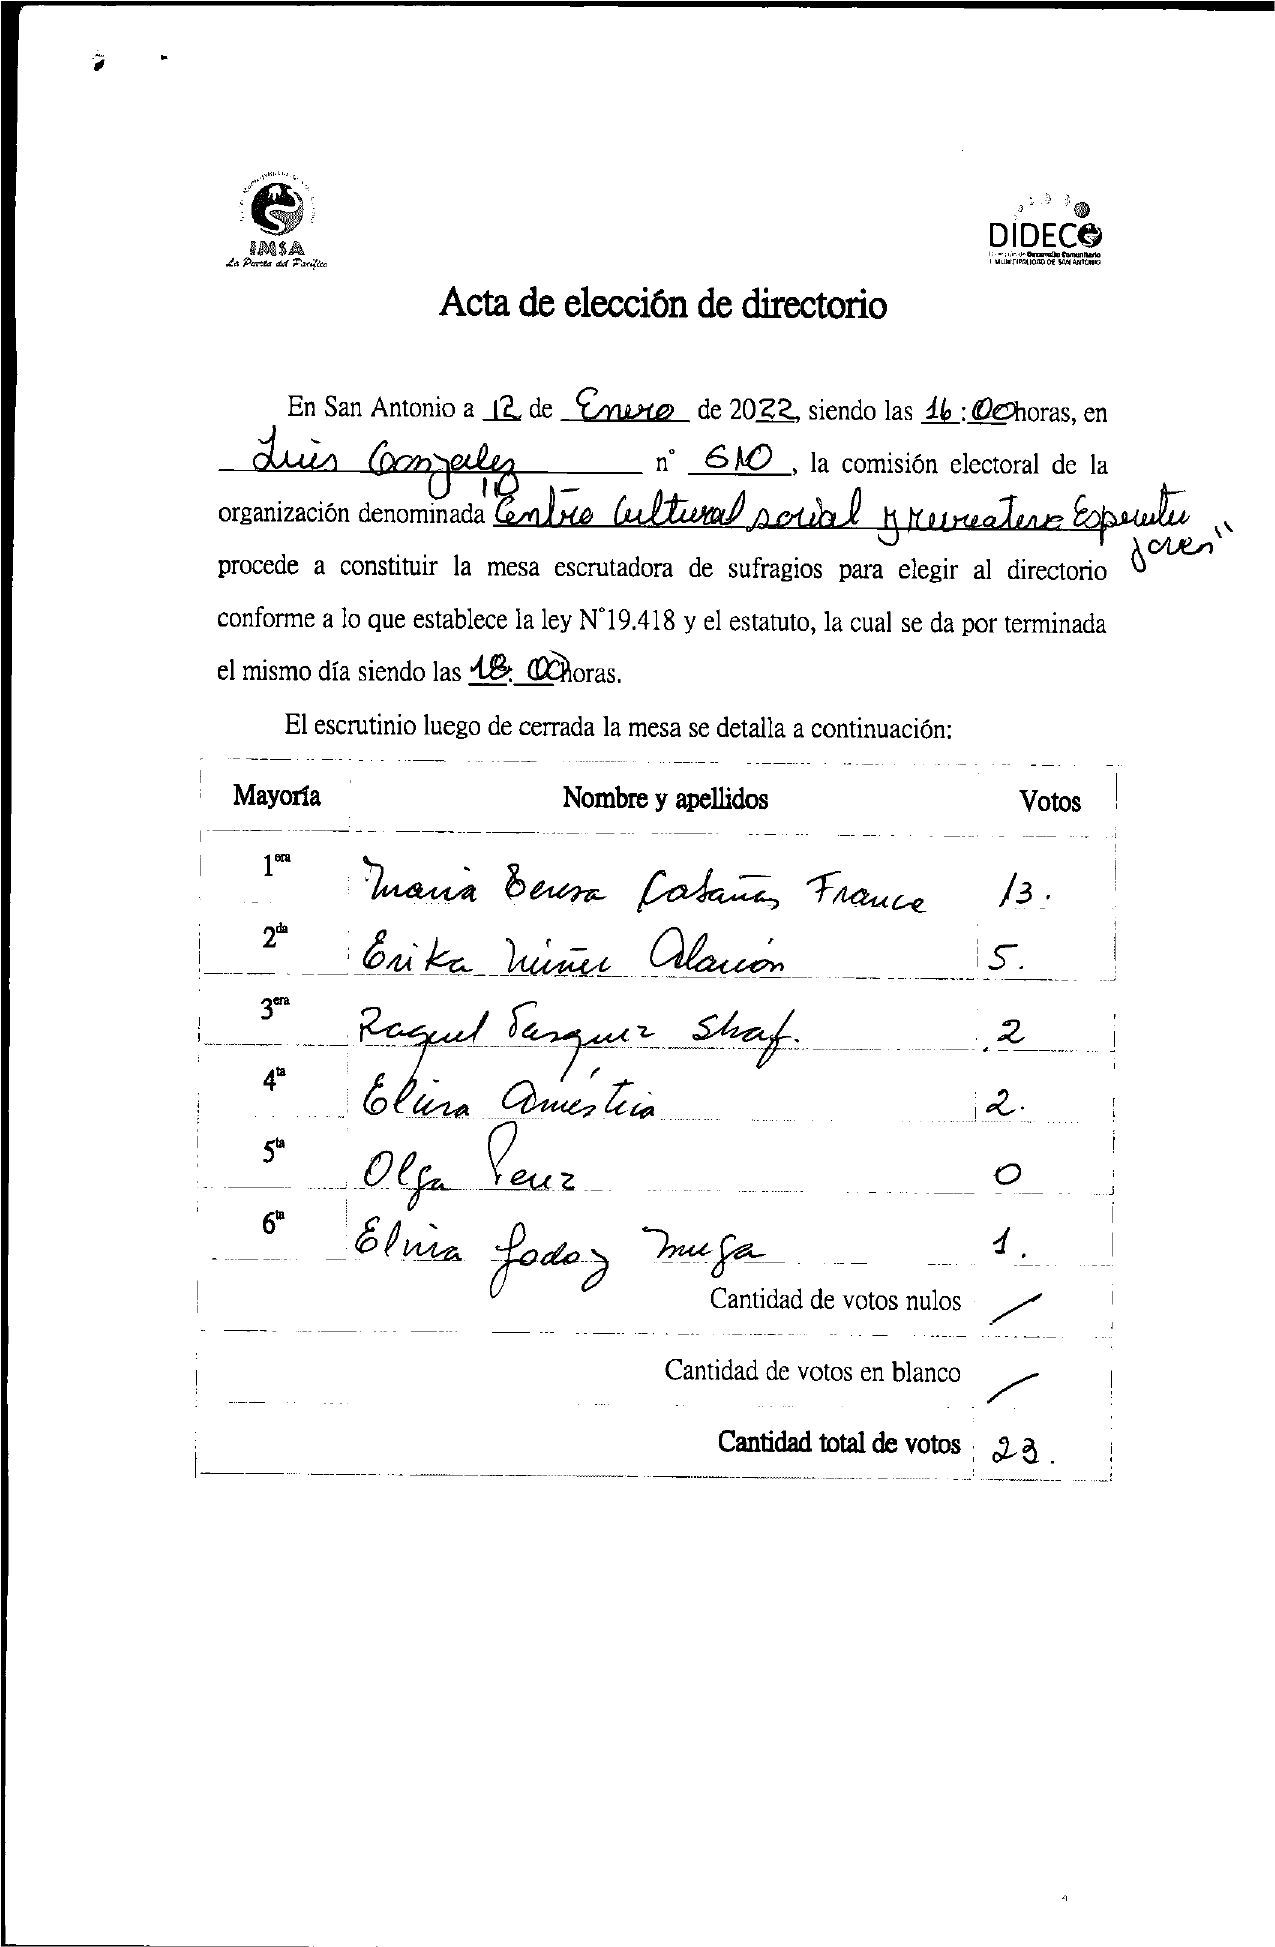 IMSA
La Puerta del Pacífico
DIDECO
Dirección de Desarrollo Comunitario
I. MUNICIPALIDAD DE SAN ANTONIO
Acta de elección de directorio
En San Antonio a 12 de Enero de 2022, siendo las 16:00 horas, en
Luis Gonzalez n° 610, la comisión electoral de la
organización denominada Centro Cultural social y recreativo Espíritu
joven"
procede a constituir la mesa escrutadora de sufragios para elegir al directorio
conforme a lo que establece la ley N°19.418 y el estatuto, la cual se da por terminada
el mismo día siendo las 18:00 horas.
El escrutinio luego de cerrada la mesa se detalla a continuación:
Mayoría Nombre y apellidos Votos
1era Maria Teresa Cabañas France 13.
2da Erika Núñez Alarcón 5.
3era Raquel Vasquez Shaf. 2
4ta Elina Améstica 2.
5ta Olga Perez 0
6ta Elvira Godoy Muga 1.
Cantidad de votos nulos /
Cantidad de votos en blanco /
Cantidad total de votos 23.